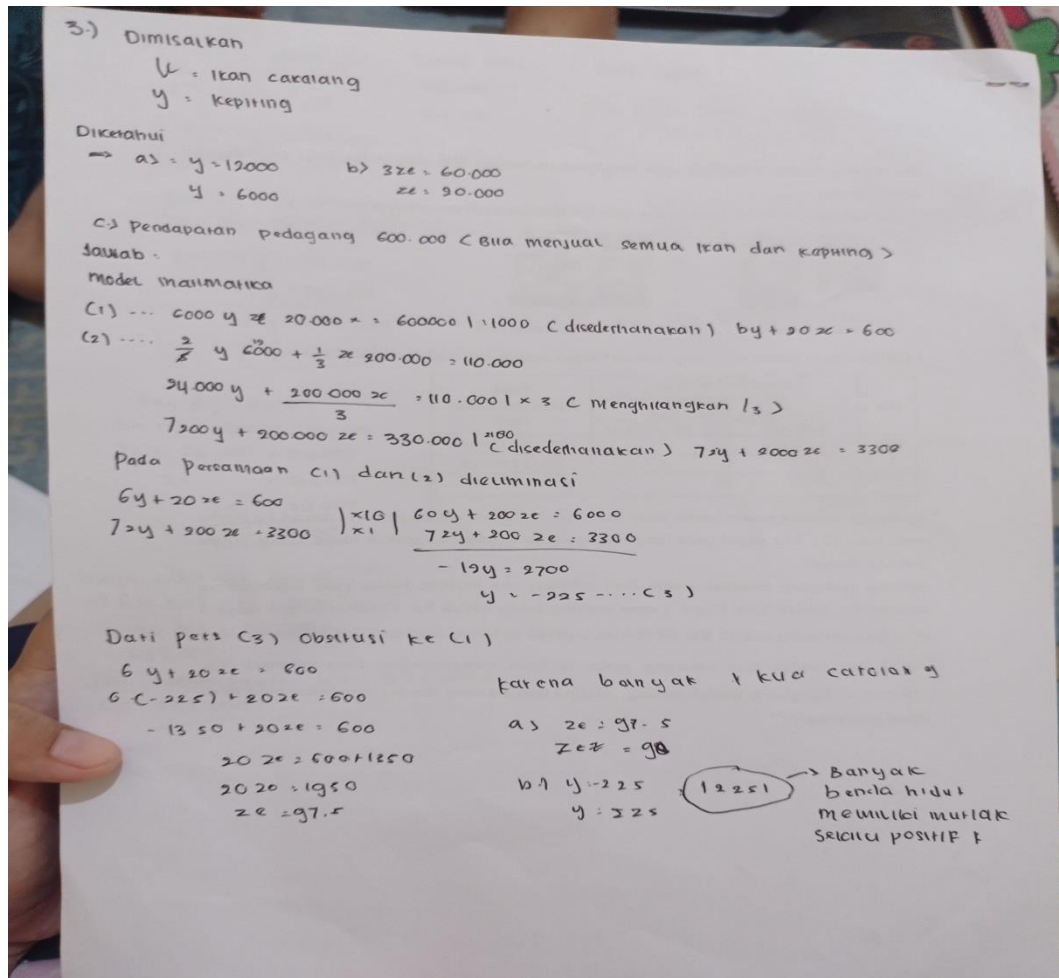 3.) Dimisalkan
u = Ikan cakalang
y = Kepiting
Diketahui
→ a> = y = 12000 b> 3x = 60.000
y = 6000 x = 20.000
c.> Pendapatan pedagang 600.000 ( Bila menjual semua Ikan dan Kapiting >
Jawab .
model matmatika
(1) ... 6000 y x 20.000 x = 600000 | : 1000 ( disederhanakan ) 6y + 20 x = 600
(2) .... y 6000 + 1/3 x 200.000 = 110.000
24.000 y + 200 000 x / 3 = 110.000 | x 3 ( Menghilangkan /3 )
7200y + 200.000 x = 330.000 | ( disedernanakan ) 72y + 2000 x = 3300
Pada persamaan (1) dan (2) dieliminasi
6y + 20 x = 600 | x10 | 60 y + 200 x = 6000
72y + 200 x = 3300 | x1 | 72y + 200 x = 3300
- 12y = 2700
y = -225 - ... ( 3 )
Dari pers (3) Obstitusi ke (1)
6 y + 20 x = 600
6 (-225) + 20x = 600
- 13 50 + 20x = 600
20 x = 600 + 1350
20 x = 1950
x = 97.5
Karena banyak
a> x = 97.5
b.> y = -225 | 2251 → Banyak
y = 225 benda hidup
memiliki mutlak
Selalu positif